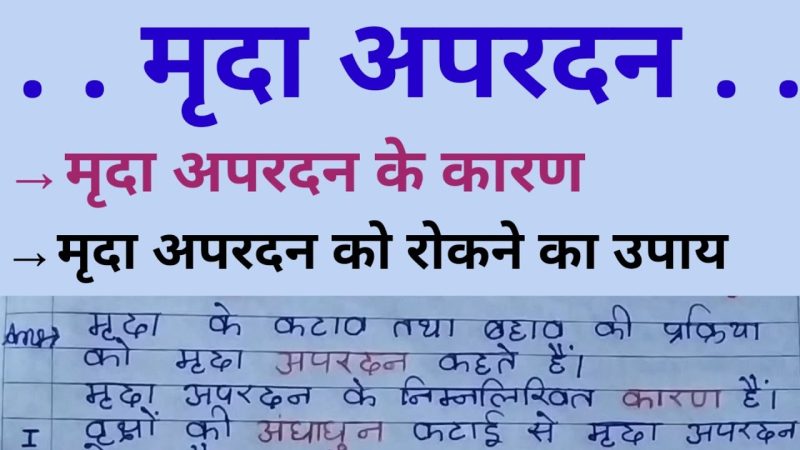 . . मृदा अपरदन . .
→ मृदा अपरदन के कारण
→ मृदा अपरदन को रोकने का उपाय
Ans→ मृदा के कटाव तथा बहाव की प्रक्रिया
को मृदा अपरदन कहते हैं।
मृदा अपरदन के निम्नलिखित कारण हैं।
I वृक्षों की अंधाधुन कटाई से मृदा अपरदन